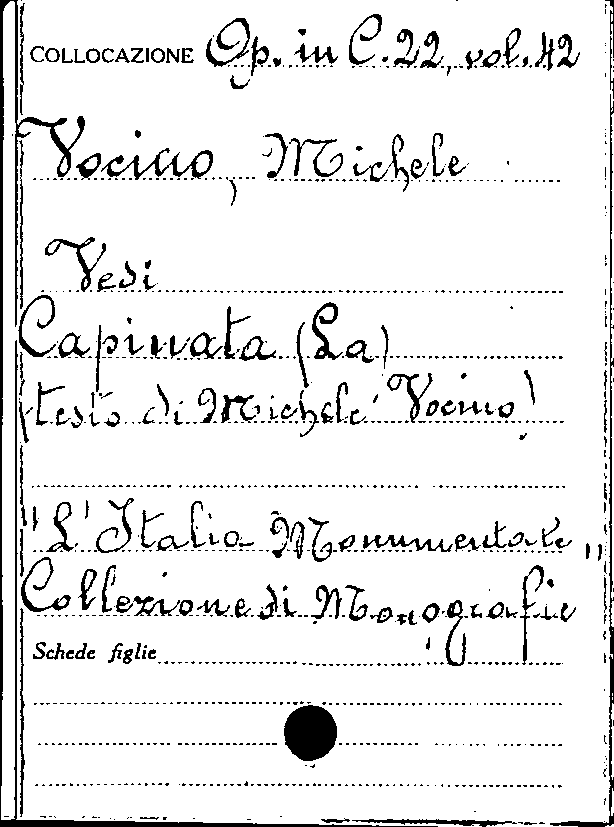 COLLOCAZIONE Op. in C. 22, vol. 42
Vocino, Michele
Vedi
Capinata (La)
(testo di Michele Vocino)
"L'Italia Monumentale"
Collezione di Monografie
Schede figlie